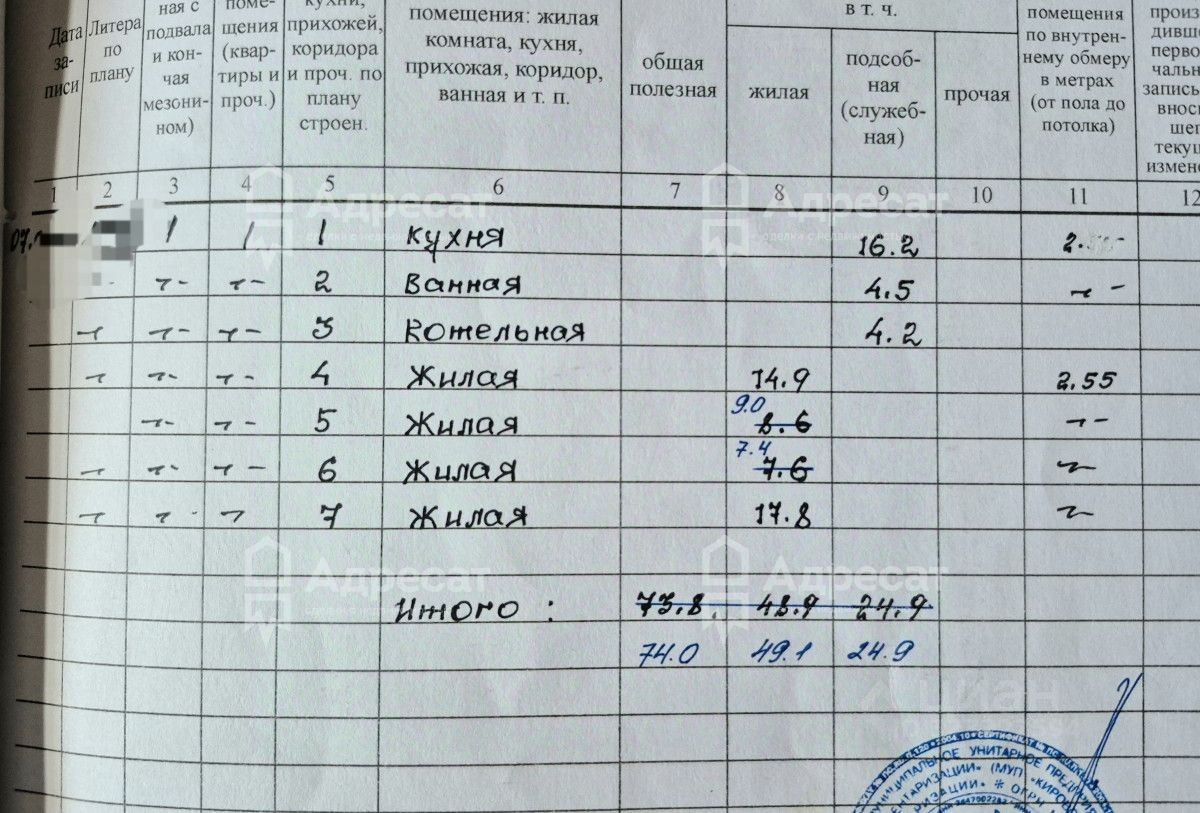 Дата за- писи
Литера по плану
ная с подвала и кон- чая мезони- ном)
поме- щения (квар- тиры и проч.)
кухни, прихожей, коридора и проч. по плану строен.
помещения: жилая комната, кухня, прихожая, коридор, ванная и т. п.
общая полезная
в т. ч.
жилая
подсоб- ная (служеб- ная)
прочая
помещения по внутрен- нему обмеру в метрах (от пола до потолка)
произ дивше перво чальн запись вносі шег текущ измене
1 2 3 4 5 6 7 8 9 10 11 12
07. 1 1 1 кухня 16.2 2.
2 Ванная 4.5
3 Котельная 4.2
4 Жилая 14.9 2.55
9.0
5 Жилая 8.6
7.4
6 Жилая 7.6
7 Жилая 17.8
Итого : 73.8. 48.9 24.9
74.0 49.1 24.9
Адресат
Адресат
сделки с недвижимостью
Адресат
Адресат
циан
МУНИЦИПАЛЬНОЕ УНИТАРНОЕ ПРЕДПРИЯ
ЕНТАРИЗАЦИИ» (МУП «КИРОВ
РИЗАЦИИ» * ОГРН